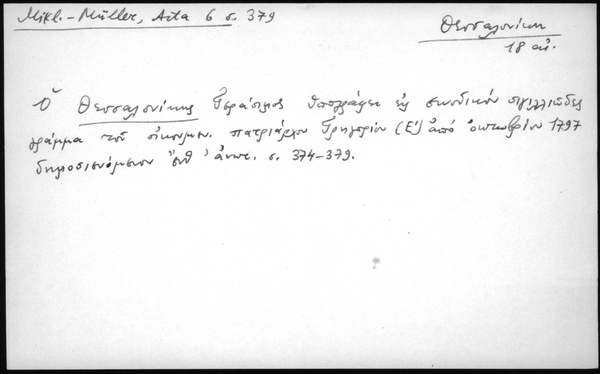 Mikl.-Müller, Acta 6 σ. 379
Θεσσαλονίκη
18 αἰ.
Ὁ Θεσσαλονίκης Γεράσιμος ὑπογράφει εἰς συνοδικόν σιγιλλιῶδες
γράμμα τοῦ οἰκουμεν. πατριάρχου Γρηγορίου (Ε') ἀπό ὀκτωβρίου 1797
δημοσιευόμενον ἔνθ' ἀνωτ. σ. 374-379.